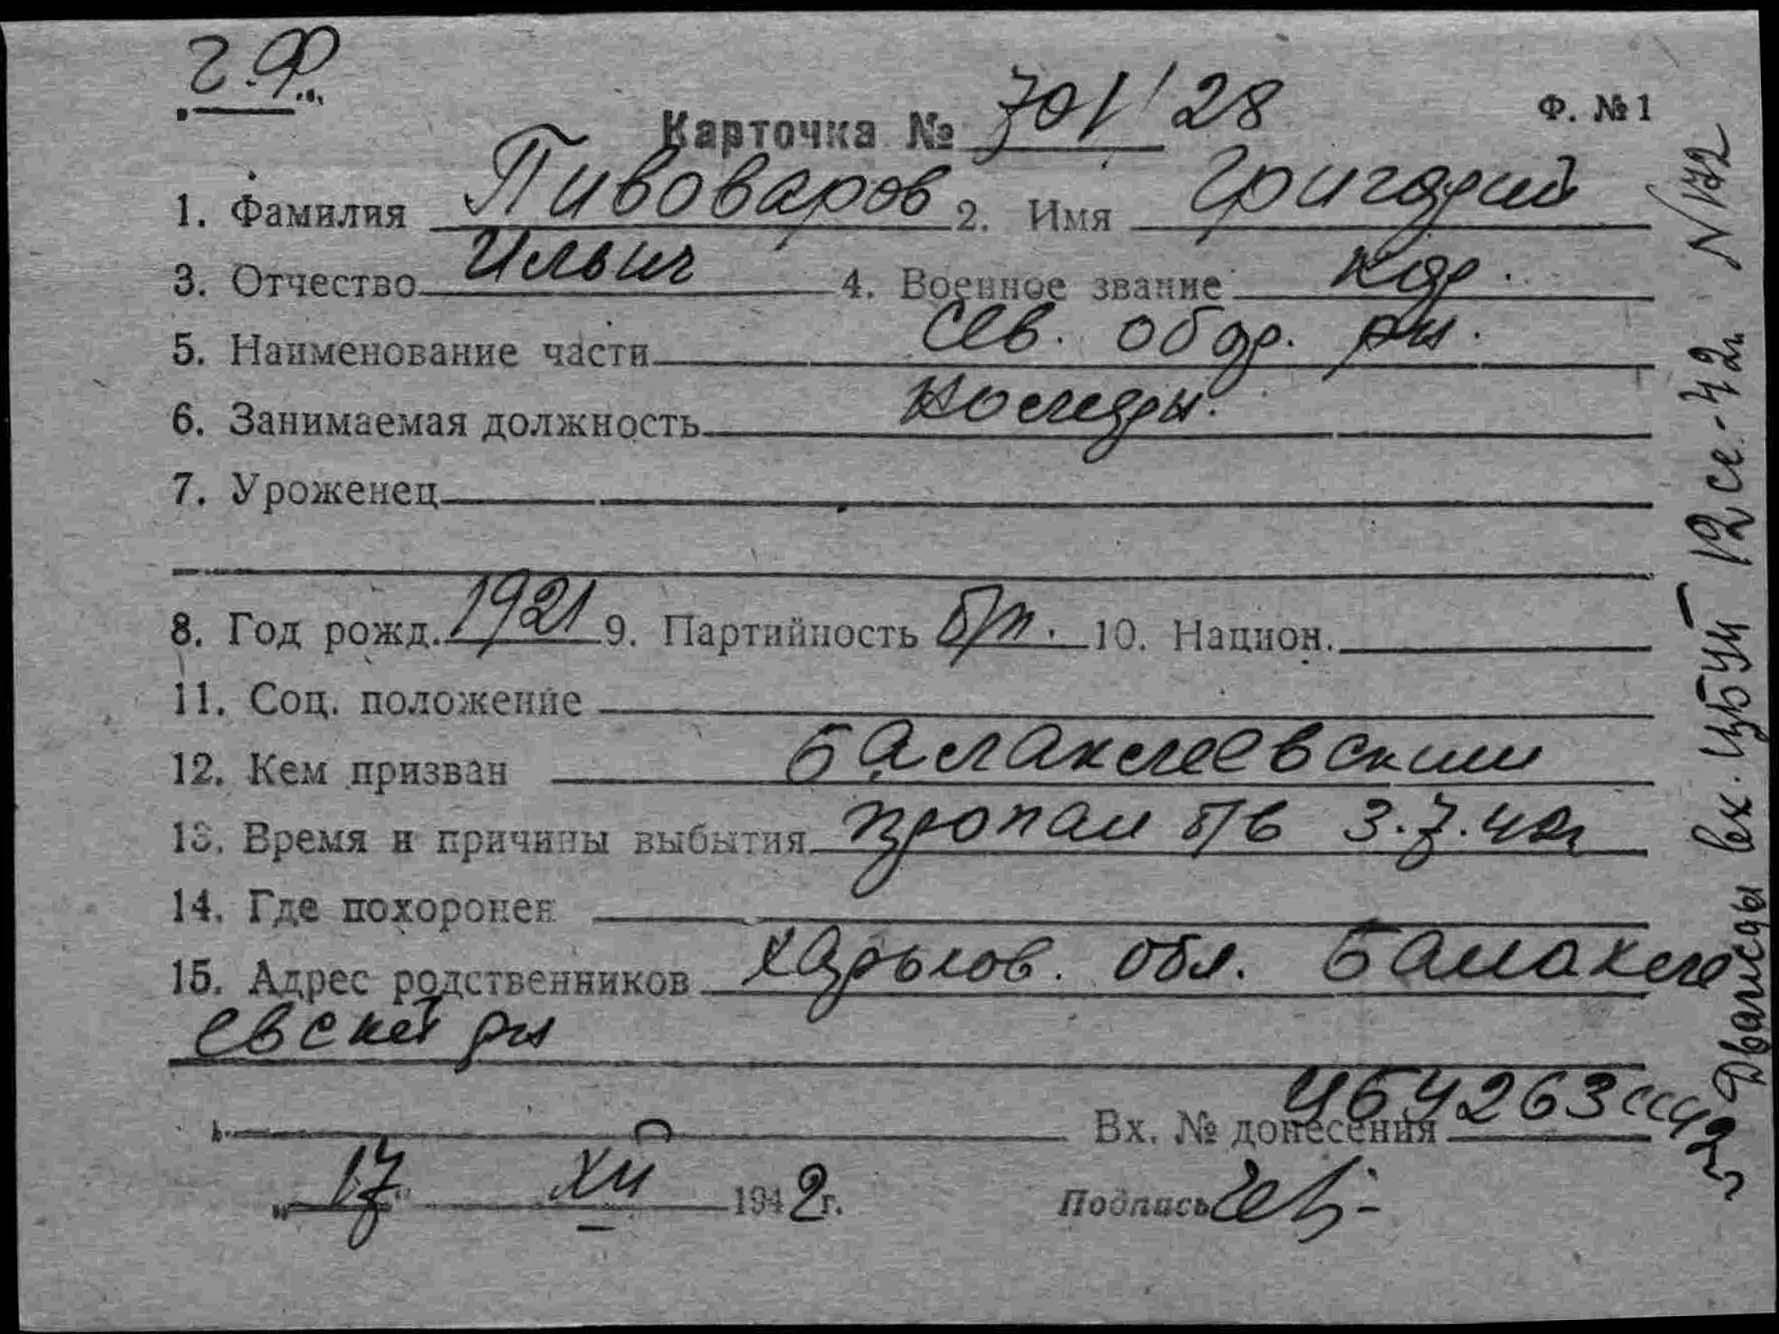 Г.Ф.
Карточка № 701/28 Ф. № 1
1. Фамилия Пивоваров 2. Имя Григорий
3. Отчество Ильич 4. Военное звание кр.
5. Наименование части Сев. обор. рн.
6. Занимаемая должность
7. Уроженец
8. Год рожд. 1921 9. Партийность б/п. 10. Национ.
11. Соц. положение
12. Кем призван Балаклеевским
13. Время и причины выбытия пропал б/в 3.7.42г
14. Где похоронен
15. Адрес родственников Харьков. обл. Балакле
евский рн
Вх. № донесения
„17“ XII 1942г.
Подпись
вх. 12 42г. N 172